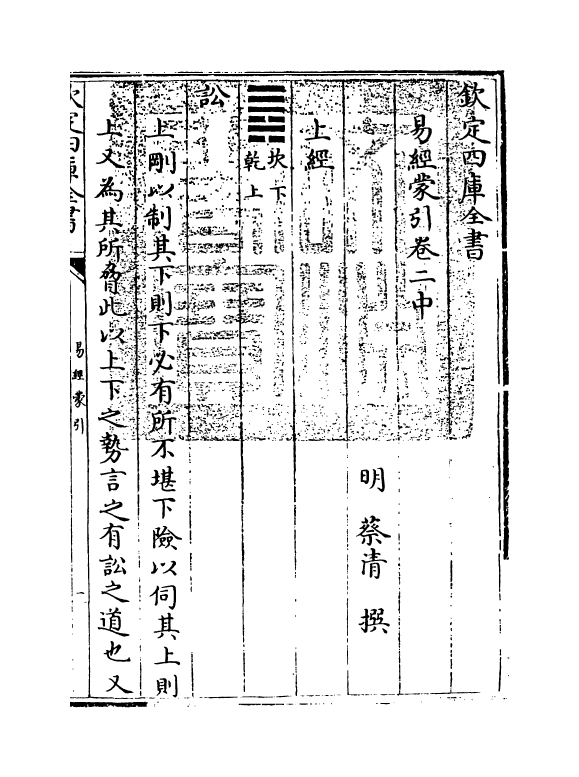 欽定四庫全書
易經蒙引卷二中
明 蔡清 撰
上經
坎下
乾上
訟
上剛以制其下則下必有所不堪下險以伺其上則
上又為其所脅此以上下之勢言之有訟之道也又
欽定四庫全書
易經蒙引